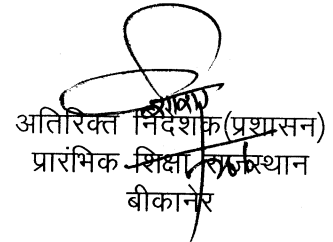 अतिरिक्त निदेशक(प्रशासन)
प्रारंभिक शिक्षा राजस्थान
बीकानेर